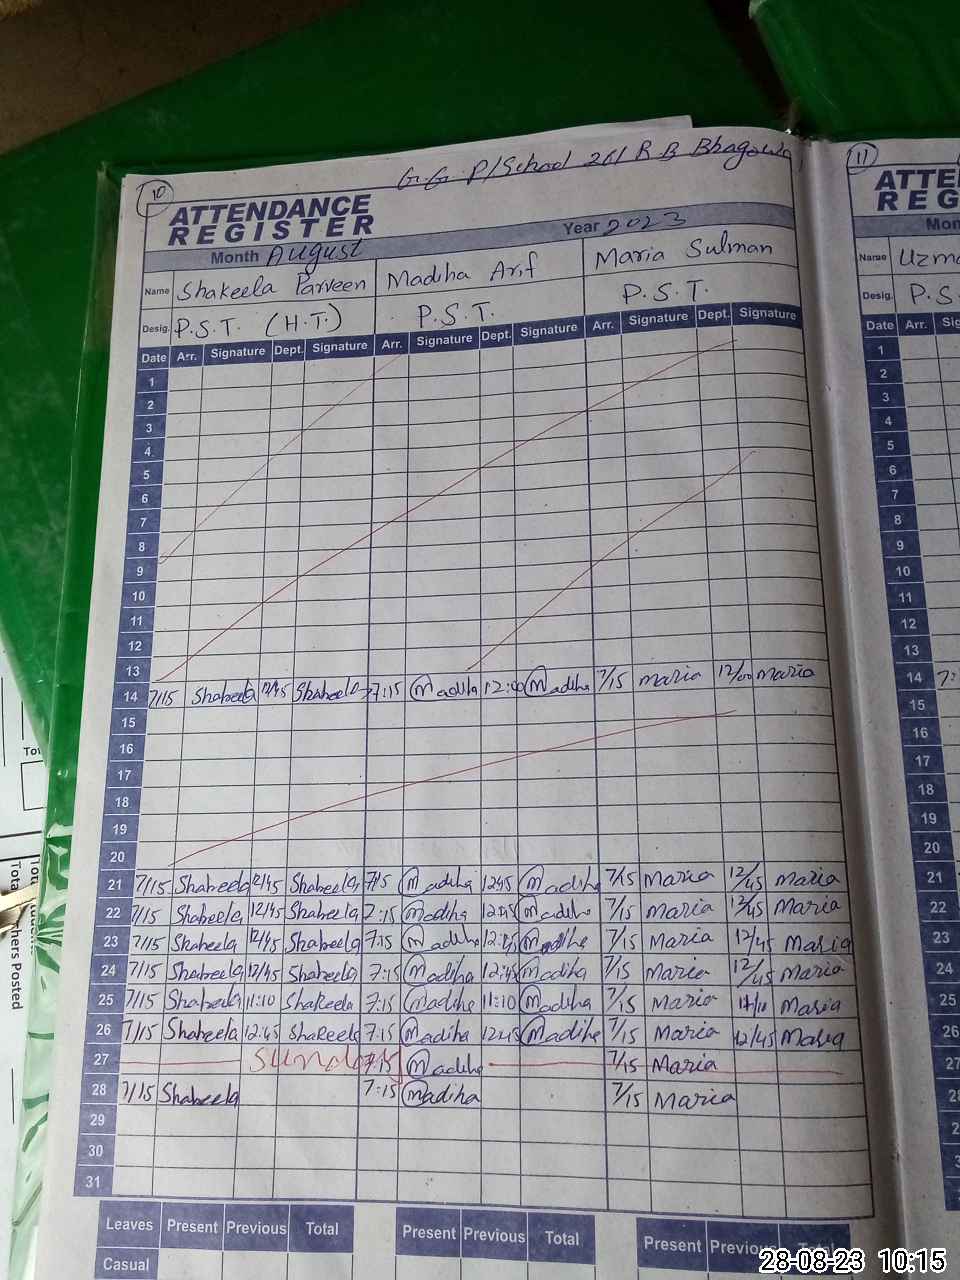 G.G. P/School 261 R B
10
11
ATTENDANCE
REGISTER
Month August Year 2023
Name Shakeela Parveen Madiha Arif Maria Sulman
Desig. P.S.T. (H.T.) P.S.T. P.S.T.
Date Arr. Signature Dept. Signature Arr. Signature Dept. Signature Arr. Signature Dept. Signature
1
2
3
4
5
6
7
8
9
10
11
12
13
14 7/15 Shakeela 12/45 Shakeela 7:15 Madiha 12:00 Madiha 7/15 Maria 12/00 Maria
15
16
17
18
19
20
21 7/15 Shakeela 12/45 Shakeela 7/15 Madiha 12:45 Madiha 7/15 Maria 12/45 Maria
22 7/15 Shakeela 12/45 Shakeela 7:15 Madiha 12:45 Madiha 7/15 Maria 12/45 Maria
23 7/15 Shakeela 12/45 Shakeela 7:15 Madiha 12:45 Madiha 7/15 Maria 12/45 Maria
24 7/15 Shakeela 12/45 Shakeela 7:15 Madiha 12:45 Madiha 7/15 Maria 12/45 Maria
25 7/15 Shakeela 11:10 Shakeela 7:15 Madiha 11:10 Madiha 7/15 Maria 11/10 Maria
26 7/15 Shakeela 12:45 Shakeela 7:15 Madiha 12:45 Madiha 7/15 Maria 12/45 Maria
27 Sunday 7:15 Madiha 7/15 Maria
28 7/15 Shakeela 7:15 Madiha 7/15 Maria
29
30
31
Leaves Present Previous Total Present Previous Total Present Previous Total
Casual
ATTE
REG
Mon
Name Uzma
Desig. P.S
Date Arr. Sig
1
2
3
4
5
6
7
8
9
10
11
12
13
14
15
16
17
18
19
20
21
22
23
24
25
26
27
28
Posted
28-08-23 10:15